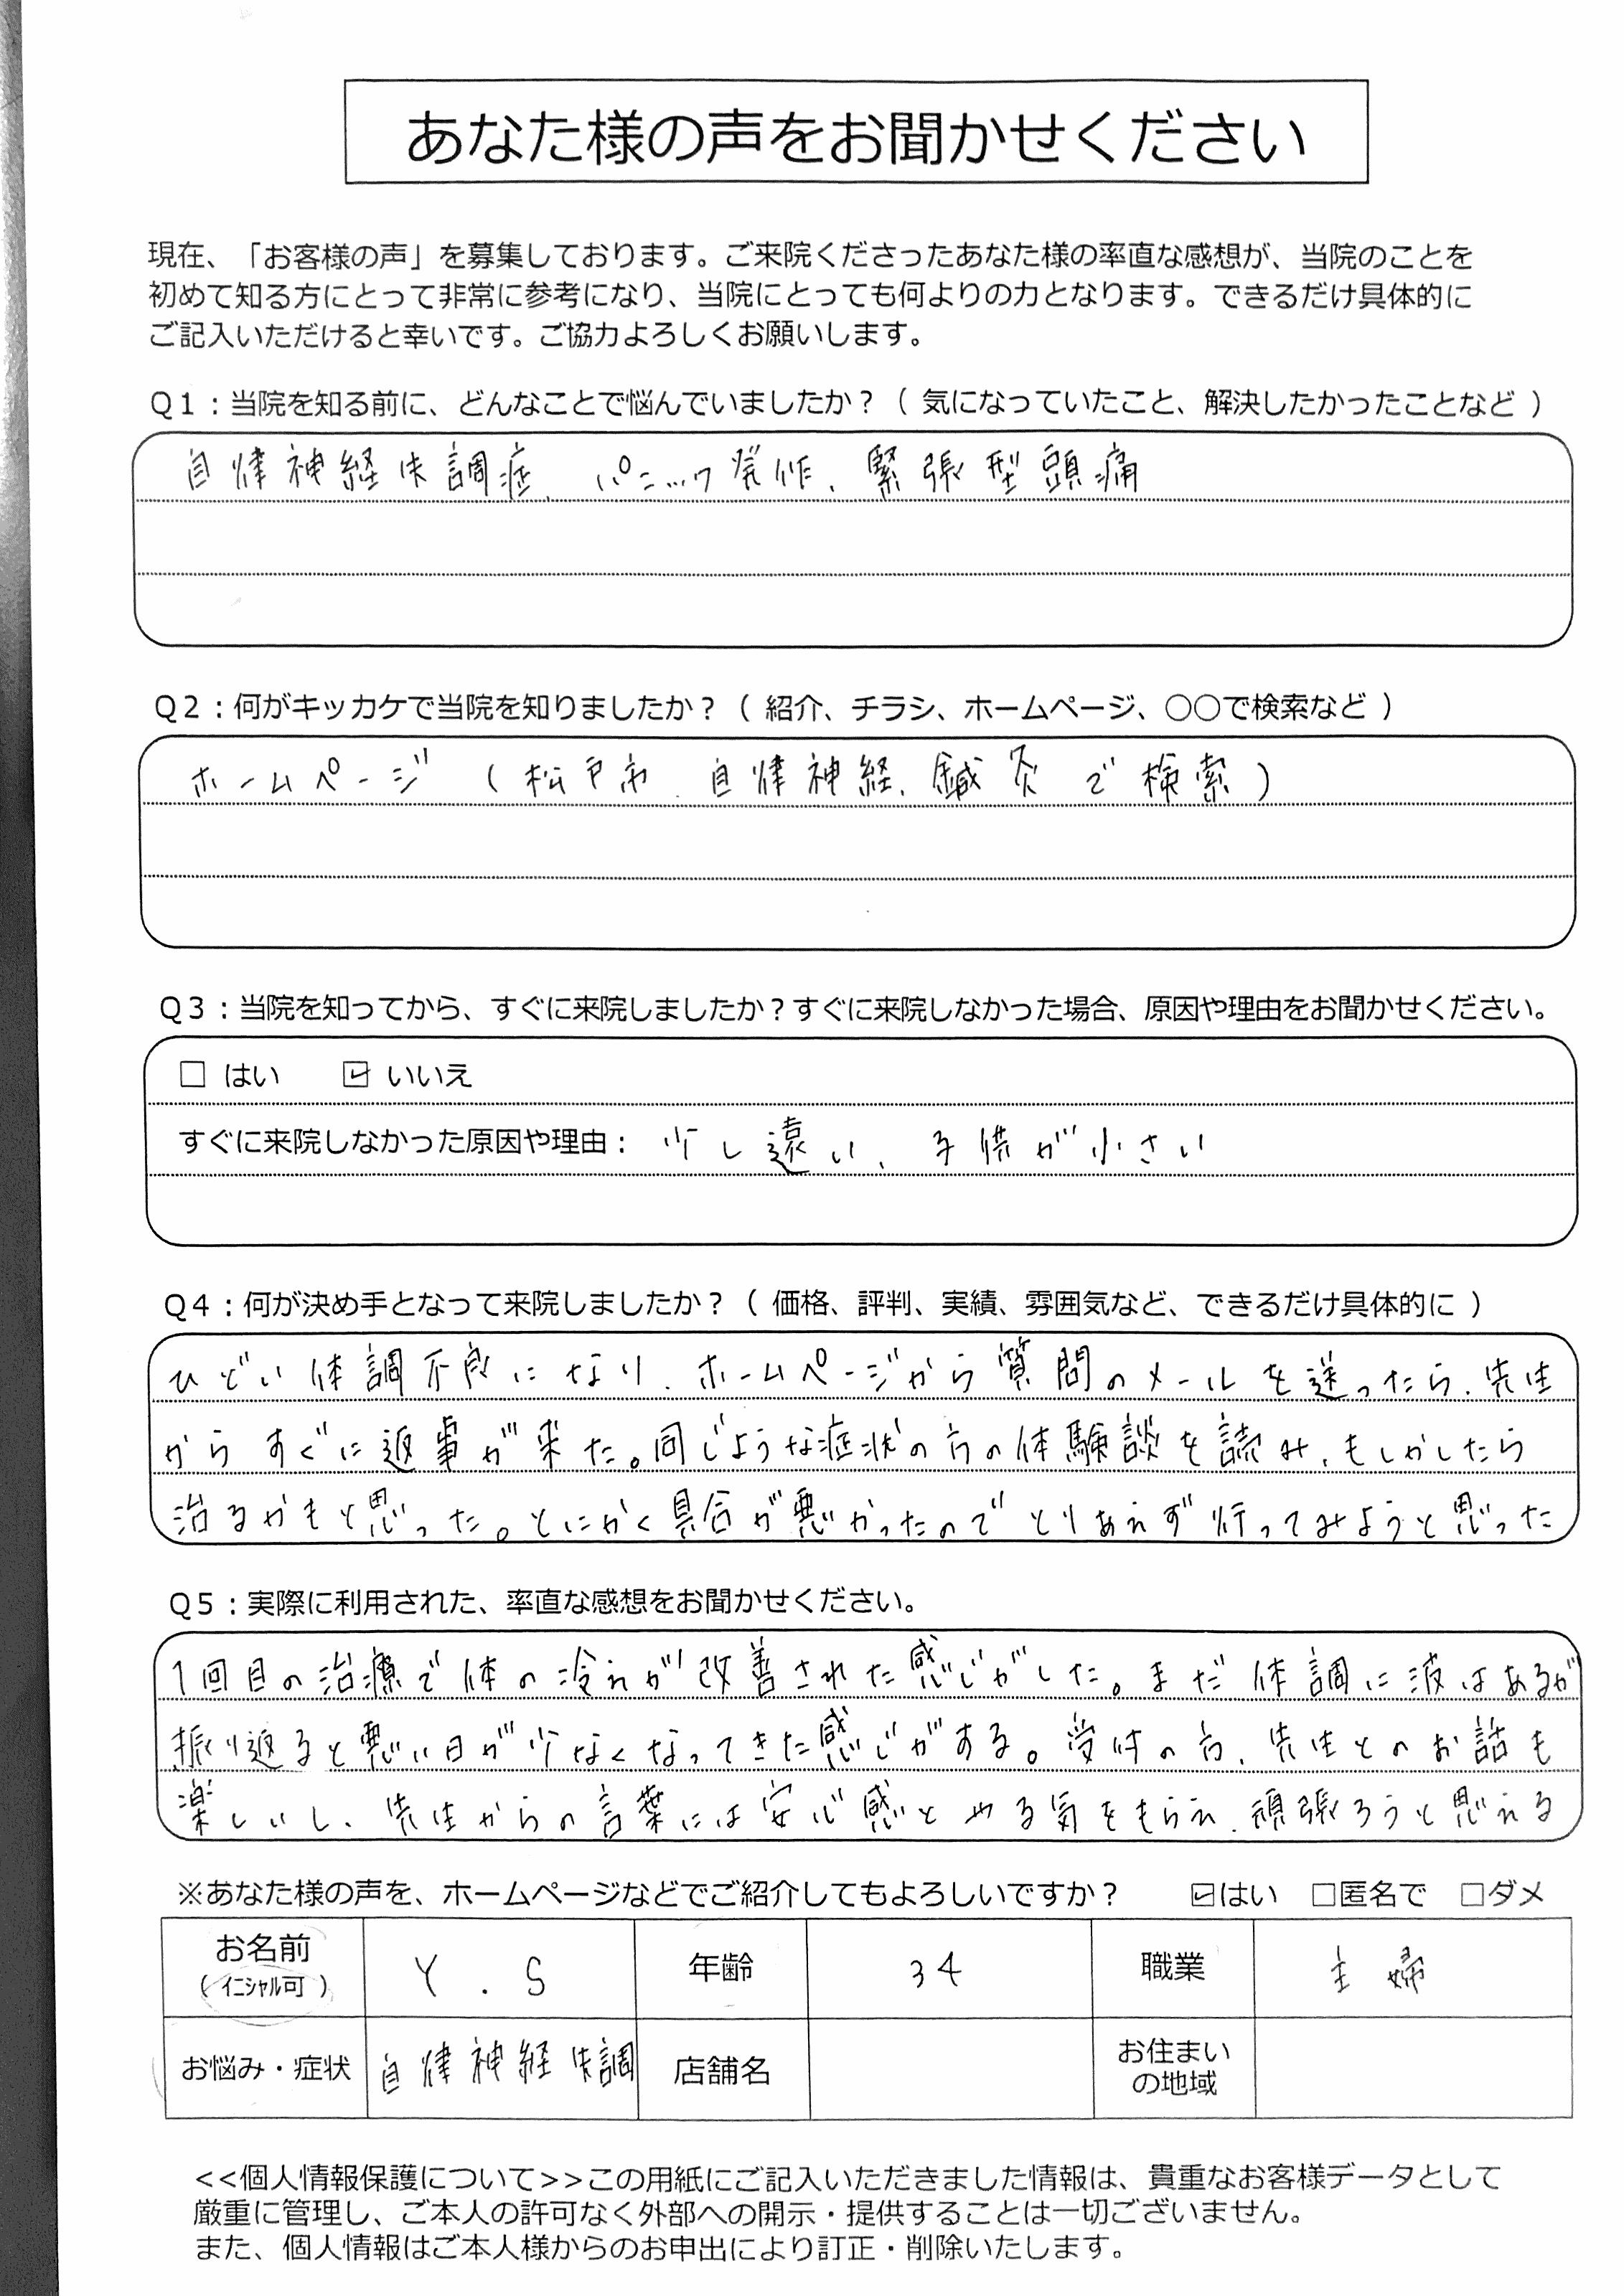 あなた様の声をお聞かせください
現在、「お客様の声」を募集しております。ご来院くださったあなた様の率直な感想が、当院のことを
初めて知る方にとって非常に参考になり、当院にとっても何よりの力となります。できるだけ具体的に
ご記入いただけると幸いです。ご協力よろしくお願いします。
Q1：当院を知る前に、どんなことで悩んでいましたか？（ 気になっていたこと、解決したかったことなど ）
自律神経失調症、パニック発作、緊張型頭痛
Q2：何がキッカケで当院を知りましたか？（ 紹介、チラシ、ホームページ、○○で検索など ）
ホームページ （松戸市、自律神経、鍼灸 で検索）
Q3：当院を知ってから、すぐに来院しましたか？すぐに来院しなかった場合、原因や理由をお聞かせください。
□ はい ☑ いいえ
すぐに来院しなかった原因や理由： 少し遠い、子供が小さい
Q4：何が決め手となって来院しましたか？（ 価格、評判、実績、雰囲気など、できるだけ具体的に ）
ひどい体調不良になり、ホームページから質問のメールを送ったら、先生
からすぐに返事が来た。同じような症状の方の体験談を読み、もしかしたら
治るかもと思った。とにかく具合が悪かったのでとりあえず行ってみようと思った
Q5：実際に利用された、率直な感想をお聞かせください。
1回目の治療で体の冷えが改善された感じがした。まだ体調に波はあるが
振り返ると悪い日が少なくなってきた感じがする。受付の方、先生とのお話も
楽しいし、先生からの言葉には安心感とやる気をもらえ、頑張ろうと思える
※あなた様の声を、ホームページなどでご紹介してもよろしいですか？ ☑はい □匿名で □ダメ
お名前 Y．S 年齢 34 職業 主婦
（ｲﾆｼｬﾙ可）
お悩み・症状 自律神経失調 店舗名 お住まい
の地域
<<個人情報保護について>>この用紙にご記入いただきました情報は、貴重なお客様データとして
厳重に管理し、ご本人の許可なく外部への開示・提供することは一切ございません。
また、個人情報はご本人様からのお申出により訂正・削除いたします。